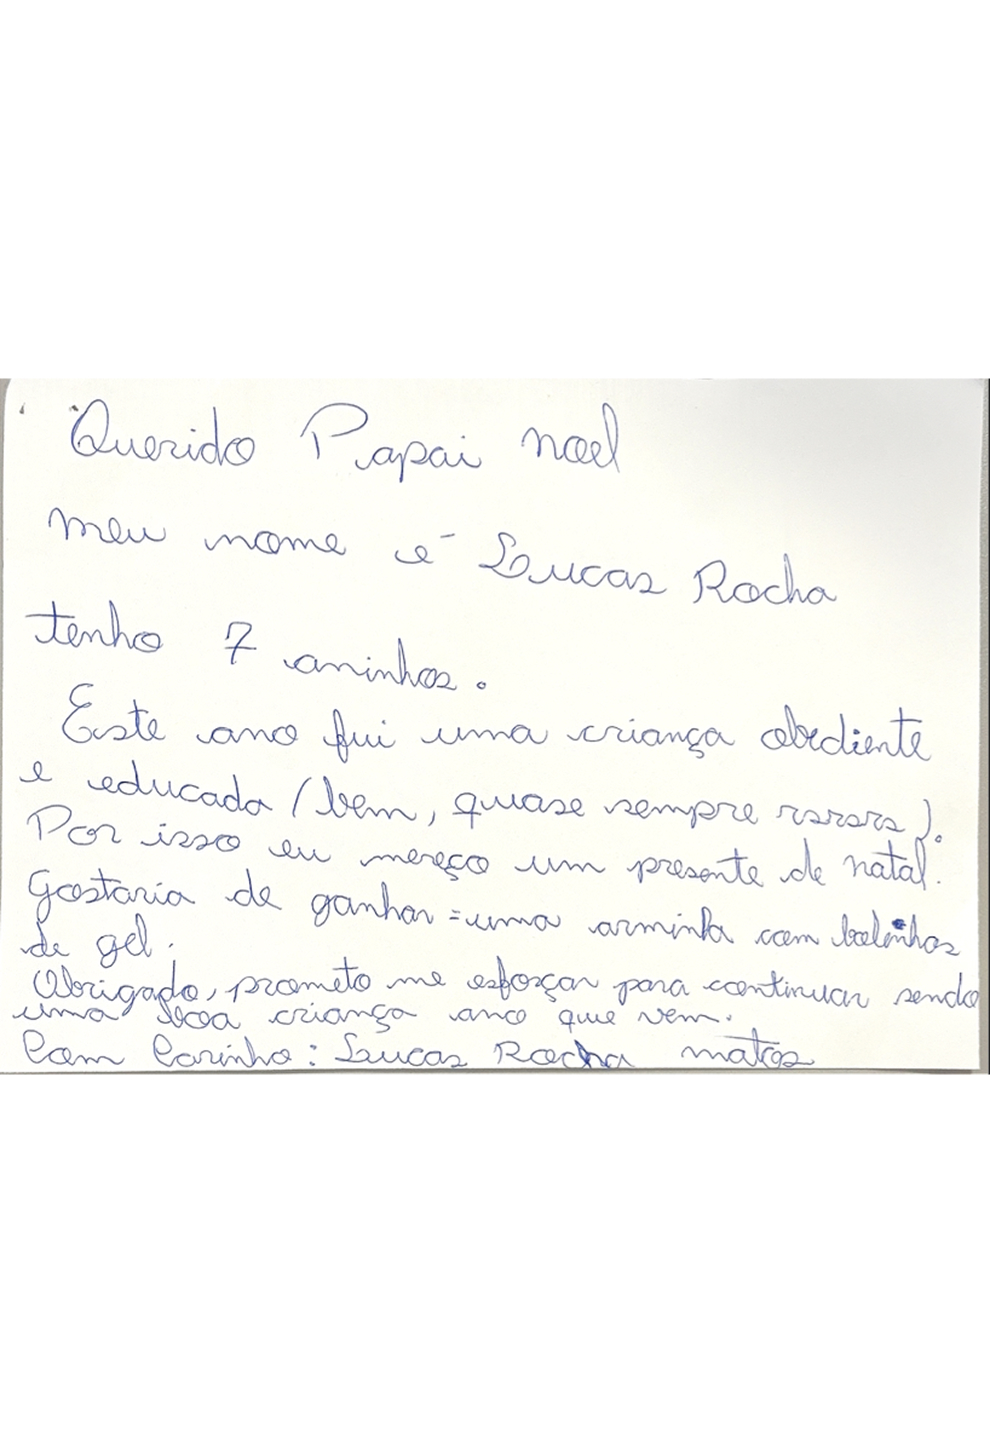 Querido Papai noel
meu nome é Lucas Rocha
tenho 7 aninhos.
Este ano fui uma criança obediente
e educada (bem, quase sempre rsrsrs).
Por isso eu mereço um presente de natal.
Gostaria de ganhar = uma arminha com bolinhas
de gel.
Obrigado, prometo me esforçar para continuar sendo
uma boa criança ano que vem.
Com Carinho: Lucas Rocha matos